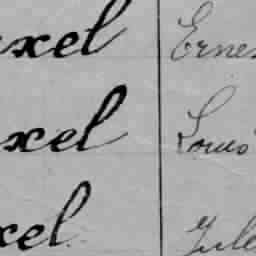 xel Ernes
xel Louis
xel Jule